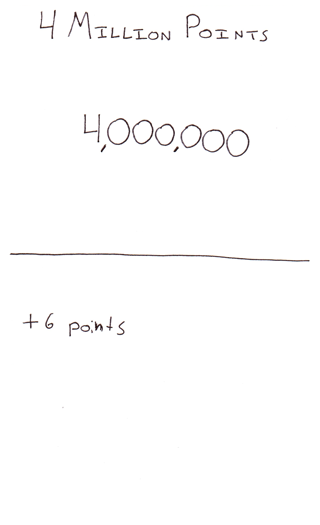 4 MILLION POINTS
4,000,000
+6 points